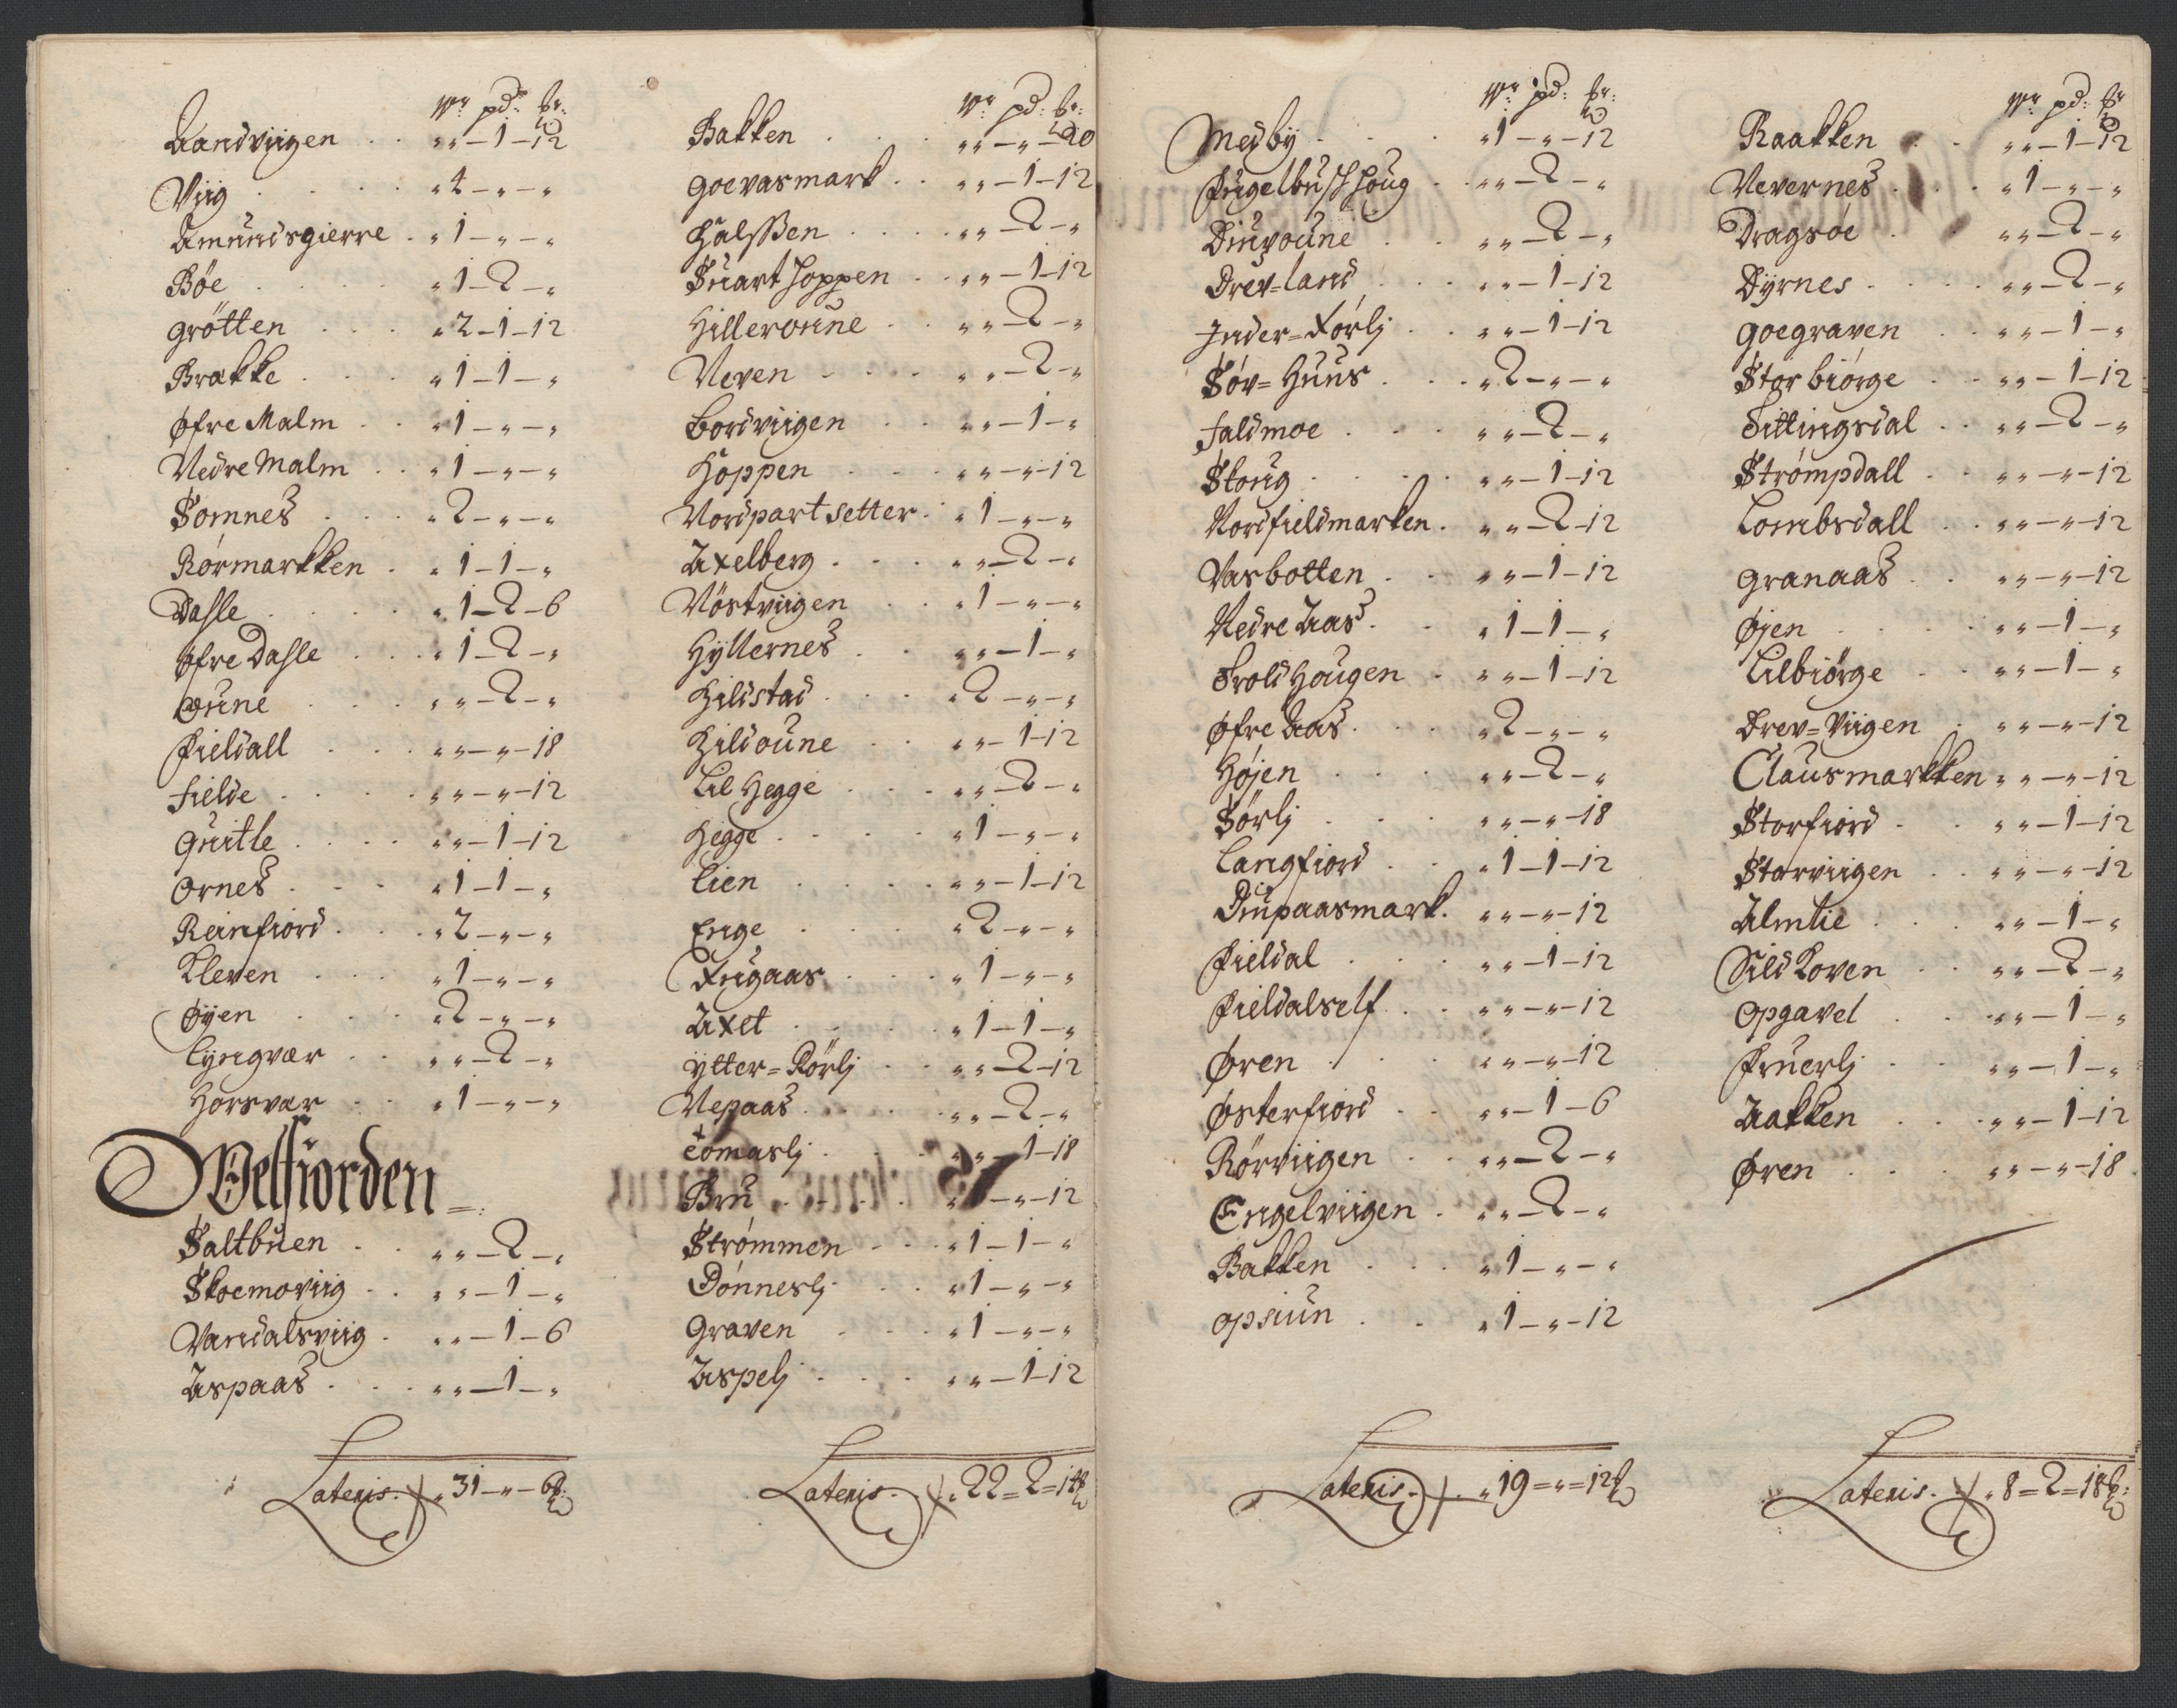 Wr pd: br:
Aandviigen . . „„–1–12
Viig . . . . „4–„–„
Amundsgierre . „1–„–„
Bøe . . . . „1–2–„
Grötten . . . „2–1–12
Brække . . . „1–1–„
Øfre Malm . . „1–„–„
Nedre Malm . . „1–„–„
Somnes . . . „2–„–„
Rörmarkken . „1–1–„
Dahle . . . . „1–2–6
Øfre Dahle . . „1–2–„
Oune . . . „„–2–„
Fieldall . . . „„–„–18
Fielde . . . . „„–„–12
Guitle . . . . „„–1–12
Ornes . . . „1–1–„
Reinfiord . . . „2–„–„
Kleven . . . „1–„–„
Øyen . . . „2–„–„
Lyngvær . . „„–2–„
Horsvær . . „1–„–„
Welfiorden =:
Saltbuen . . „„–2–„
Skoemoviig . . „„–1–„
Vandalsviig . „„–1–6
Aspaas . . . „„–1–„
Lateris. „31–„–6 br:
Wr pd: br:
Bakken . . . „„–„–20
Goevasmark . . „„–1–12
Halssen . . . . „„–2–„
Suarthoppen . . „„–1–12
Hilleroune . . „„–2–„
Neven . . . . „„–2–„
Bordviigen . . „„–1–„
Hoppen . . . „„–„–12
Nordpart setter . „1–„–„
Axelberg . . . „„–2–„
Nöstviigen . . „1–„–„
Hyllernes . . „„–1–„
Hildstad . . . „2–„–„
Hildoune . . „„–1–12
Lil Hegge . . . „„–2–„
Hegge . . . . „1–„–„
Lien . . . . „„–1–12
Enge . . . „2–„–„
Fugaas . . . „1–„–„
Axet . . . . „1–1–„
Ytter=Rörlj . . „„–2–12
Nepaas . . . . „„–2–„
Tomaslj . . . „„–1–18
Bru . . . . „„–„–12
Strømmen . . . „1–1–„
Dönneslj . . „1–„–„
Graven . . . „1–„–„
Aspelj . . . . „„–1–12
Lateris. „22=2=14 br
Wr pd: br:
Medby . . . „1–„–12
Fugelbuschhoug . „„–2–„
Diuvoune . . „„–2–„
Drev=land . . . „„–1–12
Inder=Rörlj . . „„–1–12
Söv=Huus . . . „2–„–„
Faldmoe . . . „„–2–„
Skoug . . . . „„–1–12
Nordfieldmarken . „„–2–12
Vasbotten . . „„–1–12
Nedre Aas . . „1–1–„
Troldhougen . „„–1–12
Øfre Aas . . . „2–„–„
Højen . . . „„–2–„
Sörlj . . . „„–„–18
Langfiord . . „1–1–12
Diupaasmark . „„–„–12
Fieldal . . . „„–1–12
Fieldalself . . „„–„–12
Øren . . . „„–„–12
Østerfiord . . „„–1–6
Rörviigen . . „„–2–„
Engelviigen . „„–2–„
Bakken . . . „1–„–„
Opsiun . . „1–„–12
Lateris. „19=„=12 br
Wr pd: br
Raakken . . „„–1–12
Nevernes . . . „1–„–„
Dragsoe . . „„–2–„
Dyrnes . . . . „„–2–„
Goegraven . . „„–1–„
Storbiörge . . „„–1–12
Tittingsdal . . „„–2–„
Strömpdall . . „„–„–12
Lombsdall . . „„–„–12
Granaas . . „„–„–12
Øjen . . . . „„–1–„
Lilbiörge . . „„–1–„
Drev=Viigen . „„–„–12
Clausmarkken „„–„–12
Storfiord . . „„–1–12
Storviigen . . „„–„–12
Almlie . . . „„–1–„
Sildkoven . . „„–2–„
Opgavel . . „„–1–„
Fruerlj . . „„–1–„
Aakken . . . „„–1–12
Øren . . . „„–„–18
Lateris. „8=2=18 br: